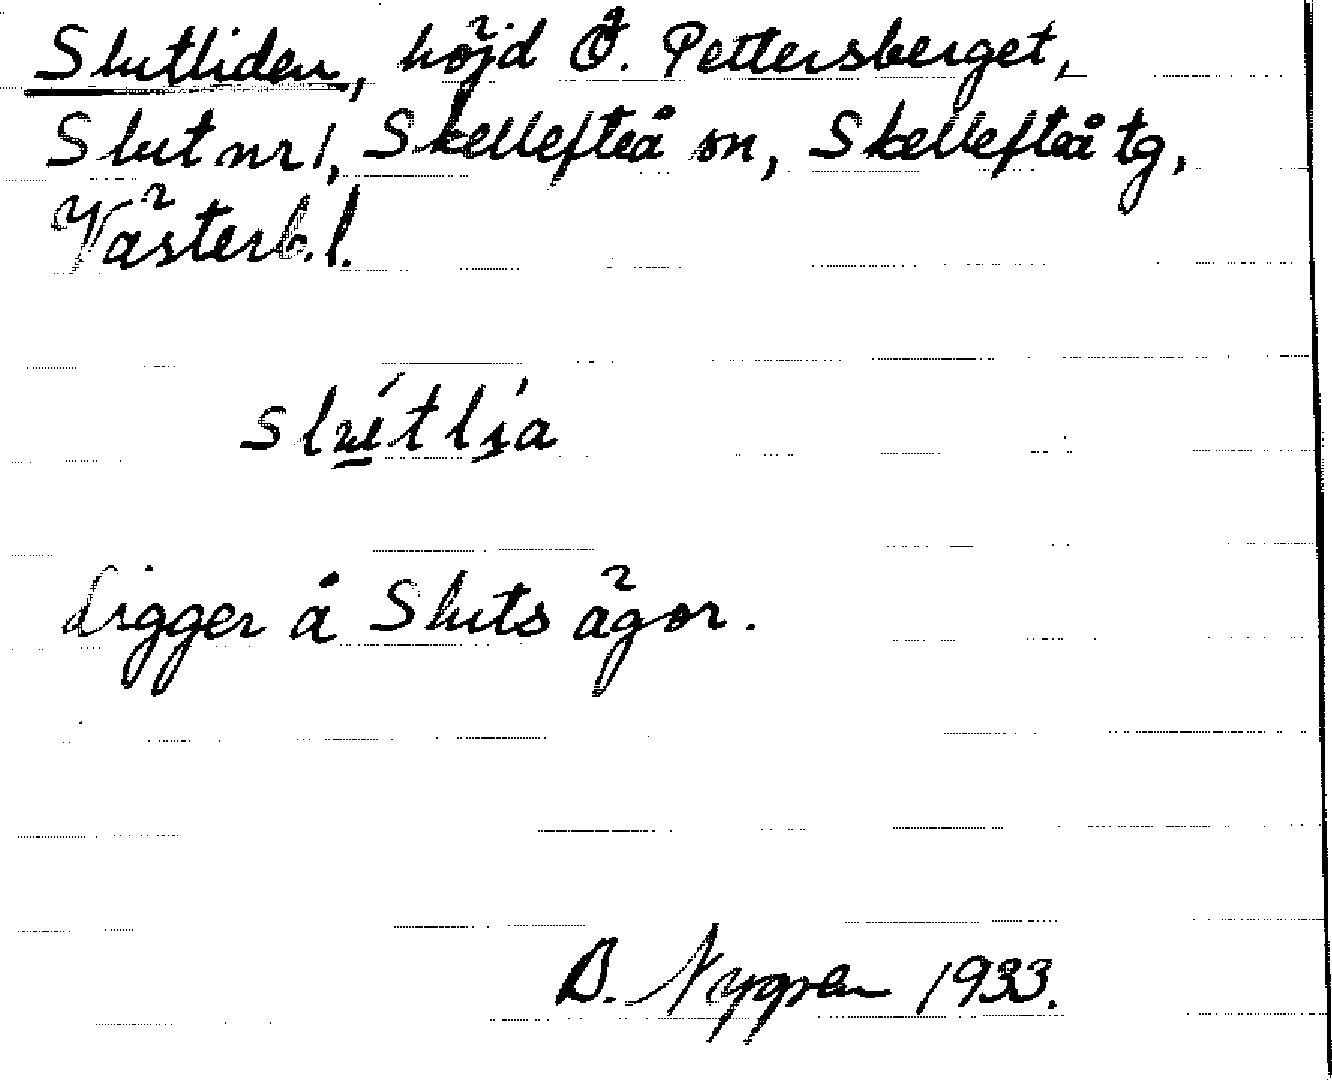 Slutliden, höjd Ö. Pettersberget,
Slut nr 1, Skellefteå sn, Skellefteå tg,
Västerb. l.
slu̱´tli´a
Ligger å Sluts ägor.
B. Nygren 1933.